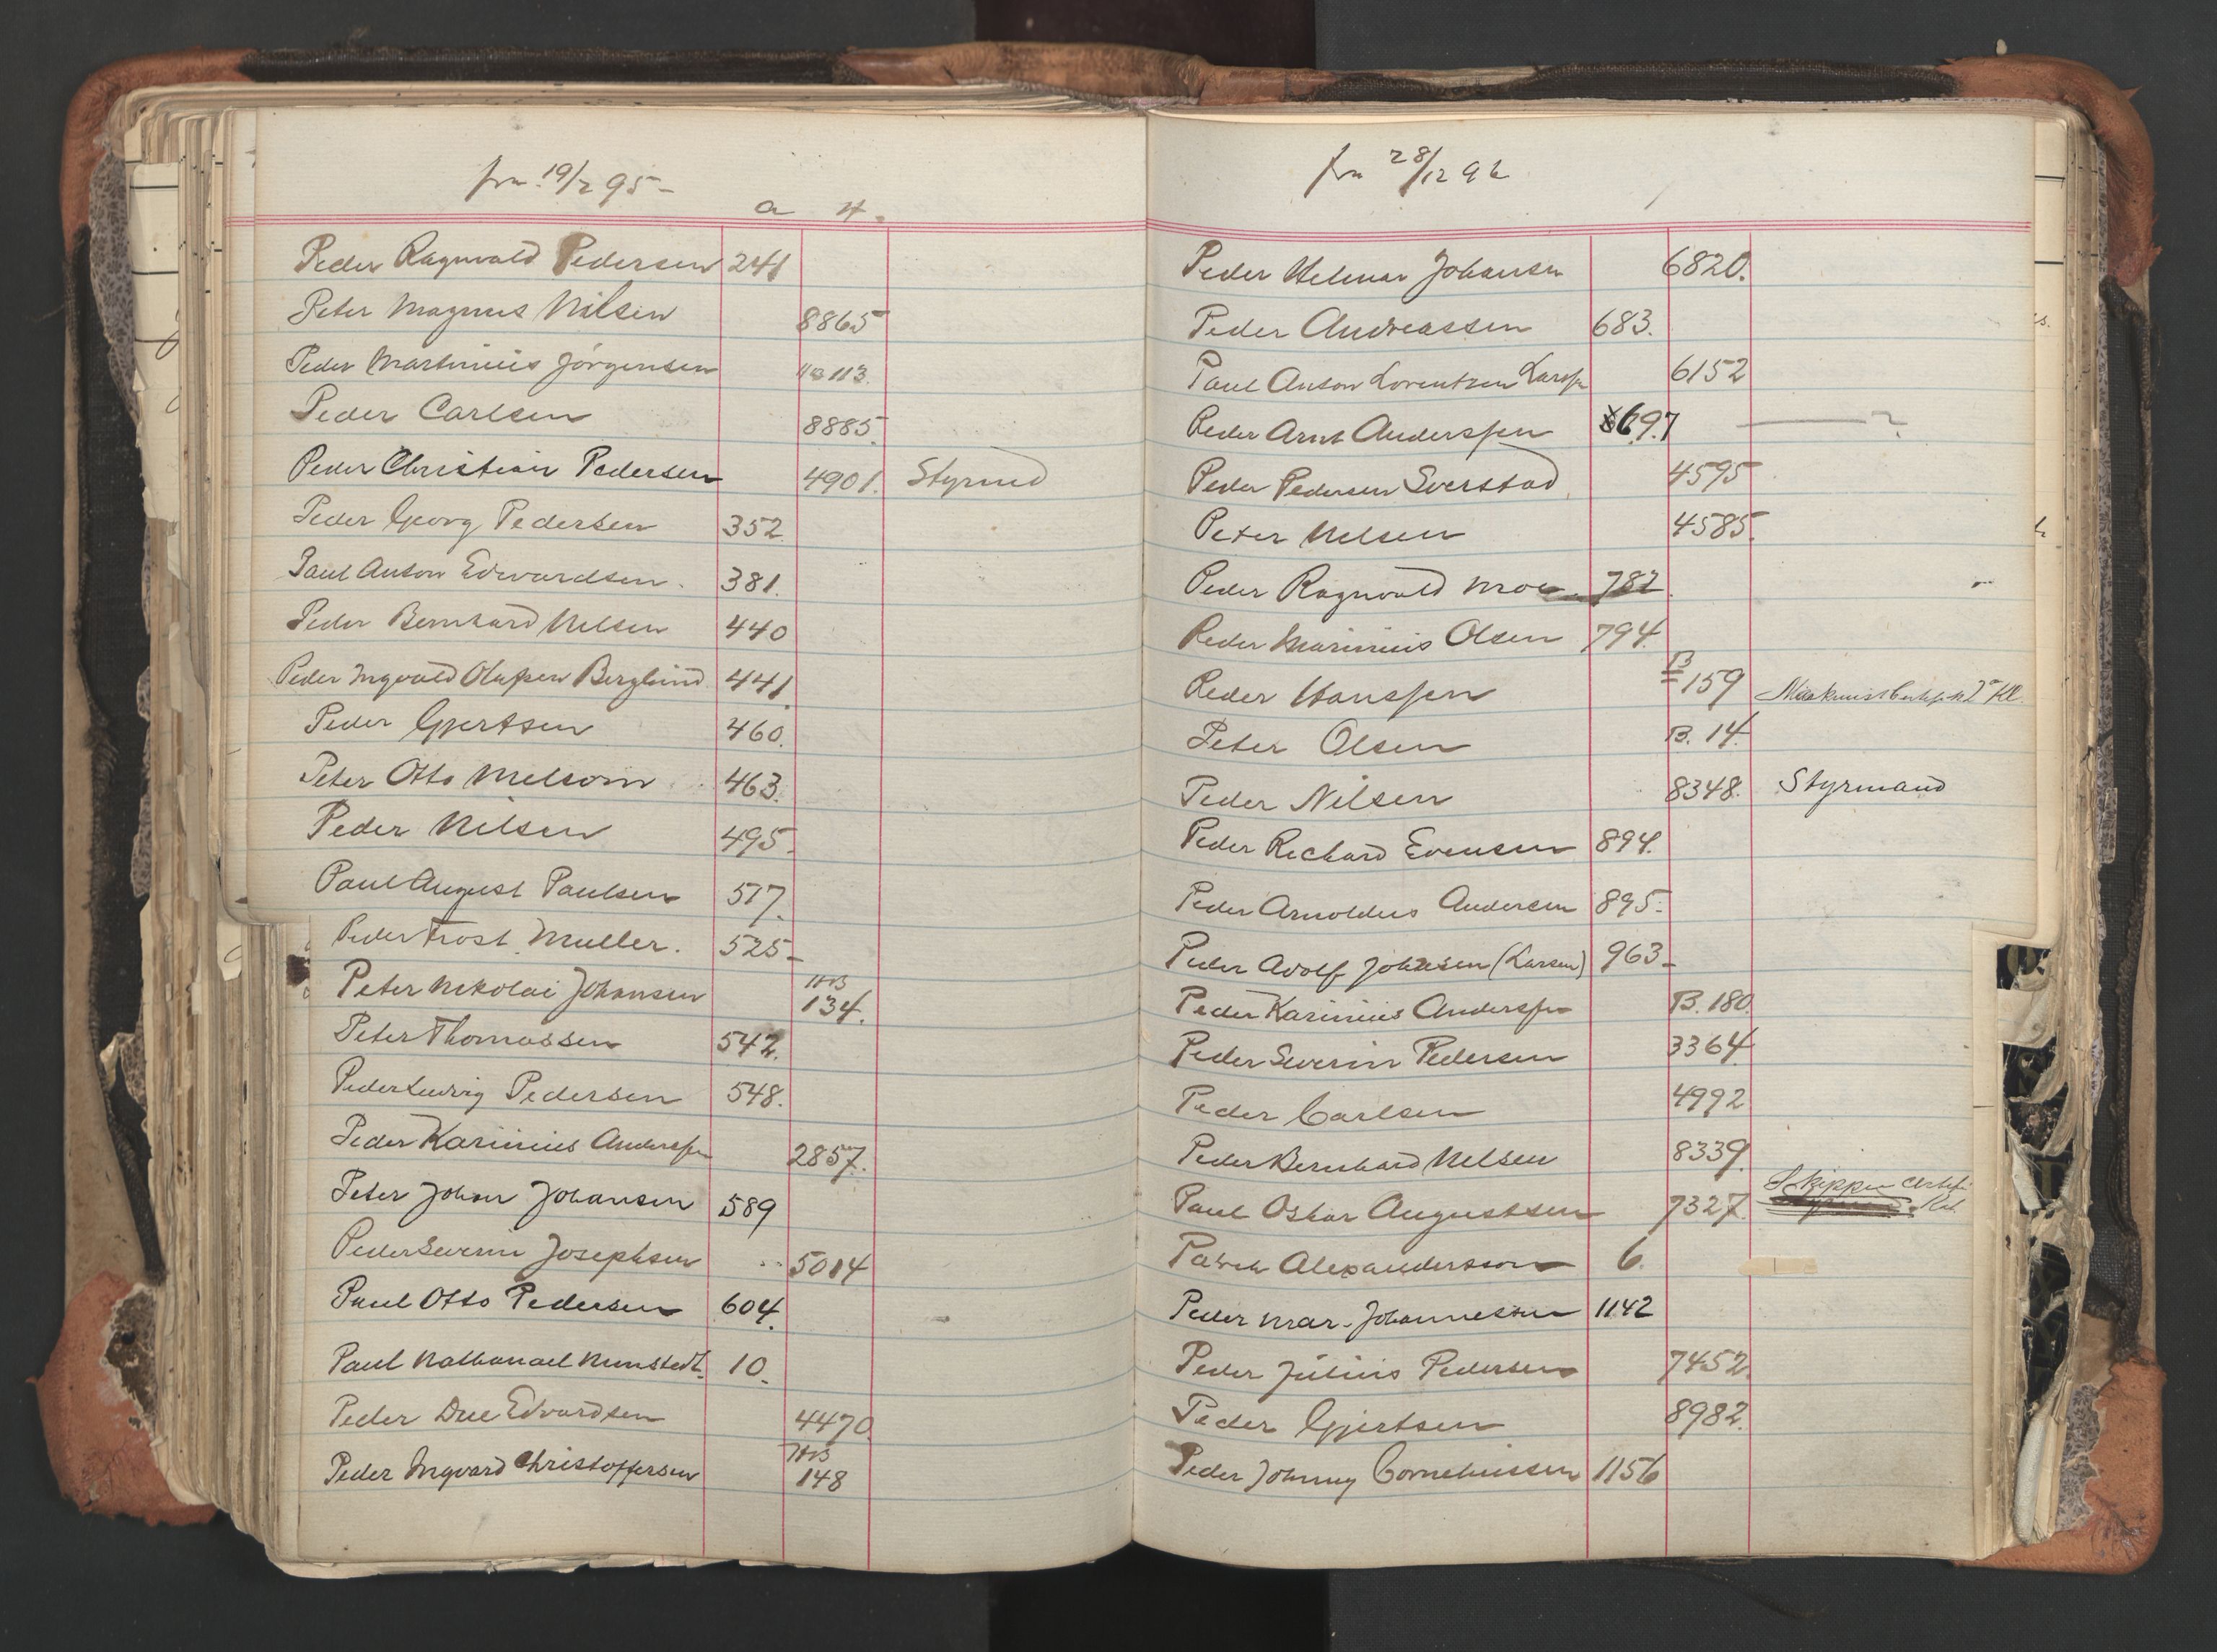 fra 19/2 95-
a H.
Peder Ragnvald Pedersen 241
Peter Magnus Nilsen 8865
Peder Martinius Jörgensen 113.
Peder Carlsen 8885.
Peder Christian Pedersen 4901. Styrmd
Peder Georg Pedersen 352.
Paul Anton Edwardsen. 381.
Peder Bernhard Nilsen 440
Peder Ingvald Olafsen Berglund 441.
Peder Gjertsen 460.
Peter Otto Melsom 463.
Peder Nilsen 495.
Paul August Paulsen 517.
Peder Frost Muller. 525-
Peter Nikolai Johansen 134.
Peter Thomassen 542.
Peder Ludvig Pedersen 548.
Peder Karinius Anderssen 2857.
Peter Johan Johansen 589
Peder Severin Josephsen 5014
Paul Otto Pedersen 604.
Paul Nathanael Munstedt. 10.
Peder Due Edvardsen 4470.
Peder Ingvard Christoffersen 148
fra 28/12 96
Peder Helmar Johansen 6820.
Peder Andreassen 683.
Paul Anton Lorentzen Larssen 6152
Peder Arnt Anderssen 697 ?
Peder Pedersen Sverstad 4595
Peter Nilsen 4585.
Peder Ragnvald Moe. 782
Peder Marinius Olsen 794.
Peder Hanssen B 159
Peter Olsen B. 14.
Peder Nilsen 8348. Styrmand
Peder Richard Evensen 894.
Peder Arnoldus Andersen 895.
Peder Adolf Johnsen (Larsen) 963-
Peder Karinius Anderssen B. 180.
Peder Severin Pedersen 3364
Peder Carlsen 4992
Peder Bernhard Nilsen 8339.
Paul Oskar Augustsen 7327. Skipper
Patrik Alexandersson 6.
Peder Mar. Johannesen 1142
Peder Julius Pedersen 7452.
Peder Gjertsen 8982.
Peder Johnny Corneliussen 1156